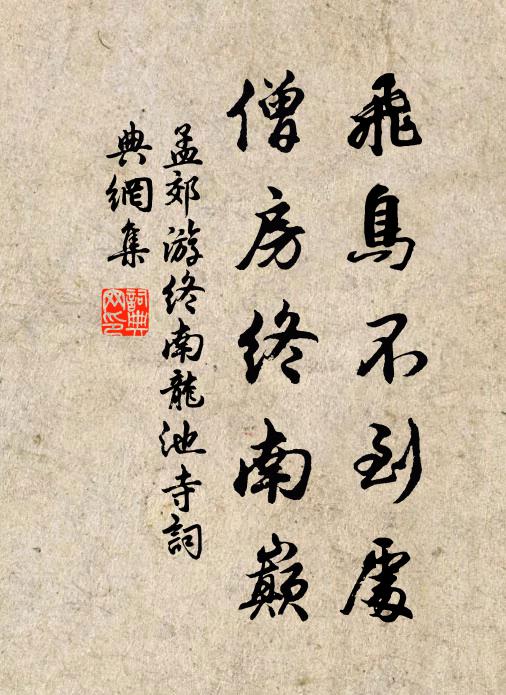 飛鳥不到處
僧房終南巔
孟郊游終南龍池寺詞
典網集
詞典網印